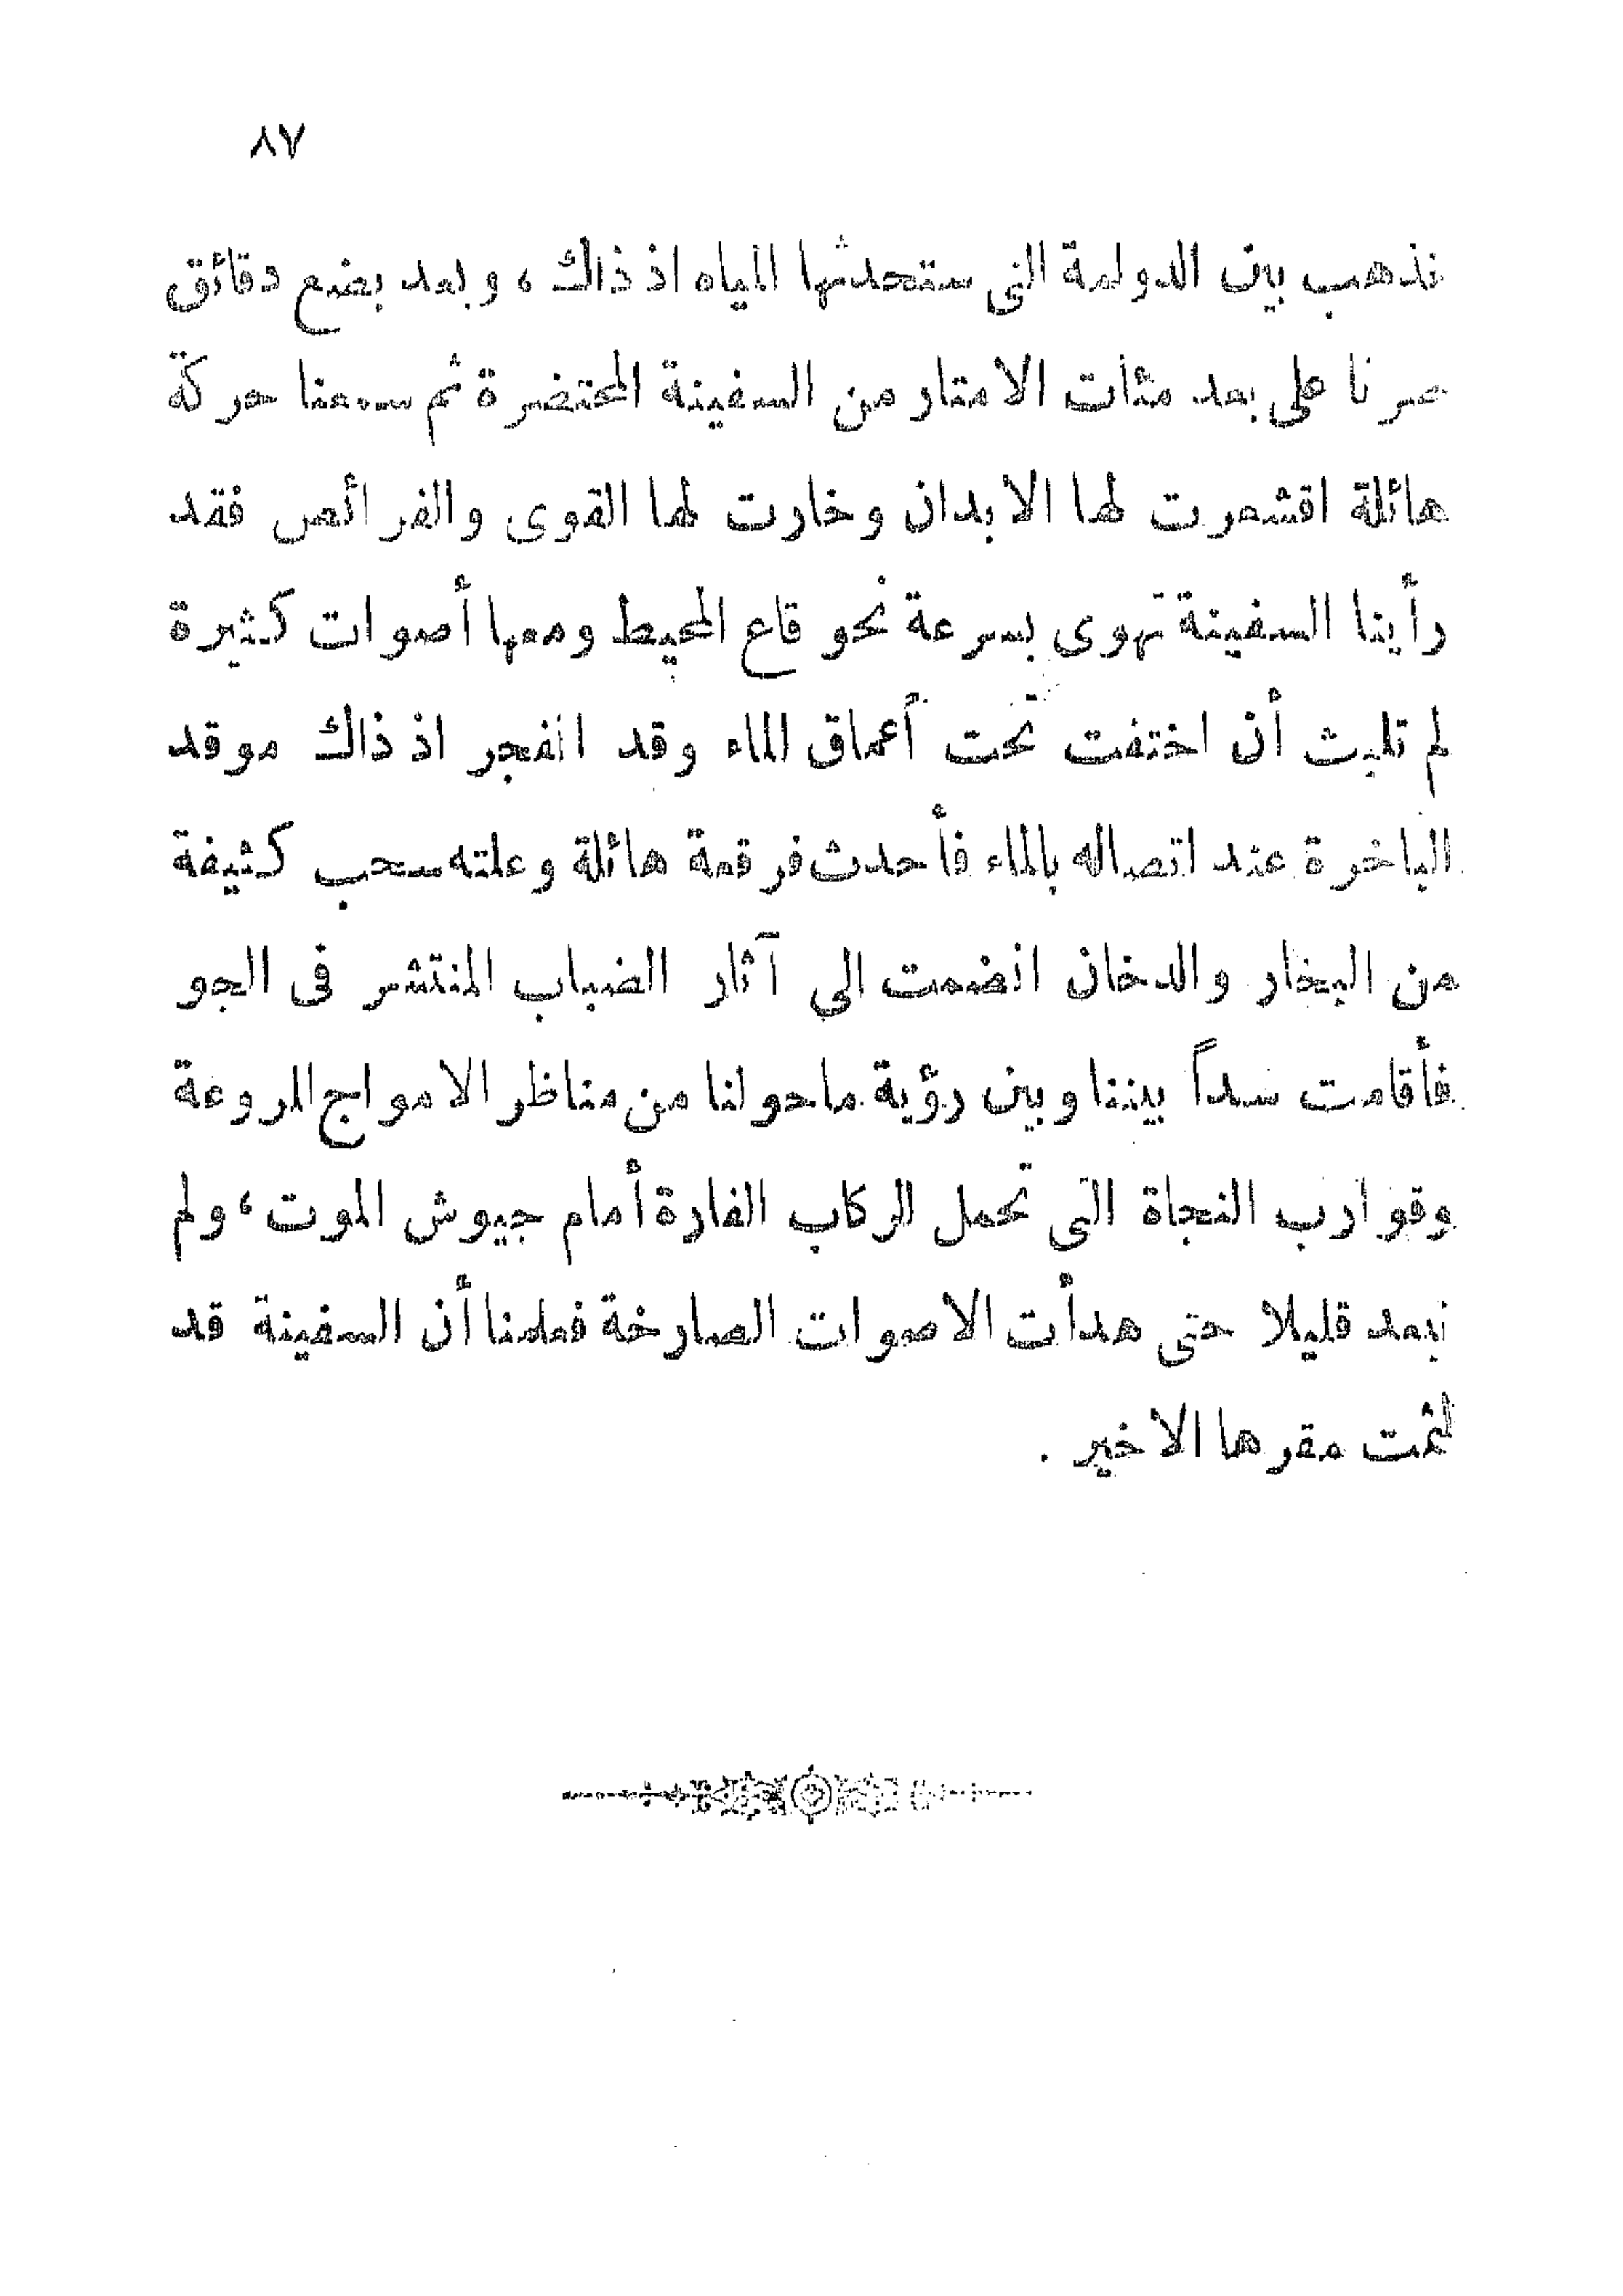 ٨٧
نذهب بين الدوامة التى ستحدثها المياه اذ ذاك ، وبعد بضع دقائق
صرنا على بعد مئات الامتار من السفينة المحتضرة ثم سمعنا حركة
هائلة اقشعرت لها الابدان وخارت لها القوى والفرائص فقد
رأينا السفينة تهوى بسرعة نحو قاع المحيط ومعها أصوات كثيرة
لم تلبث أن اختفت تحت أعماق الماء وقد انفجر اذ ذاك موقد
الباخرة عند اتصاله بالماء فأحدث فرقعة هائلة وعلته سحب كثيفة
من البخار والدخان انضمت الى آثار الضباب المنتشر فى الجو
فأقامت سداً بيننا وبين رؤية ما حولنا من مناظر الامواج المروعة
وقوارب النجاة التى تحمل الركاب الفارة أمام جيوش الموت ، ولم
نبعد قليلا حتى هدأت الاصوات الصارخة فعلمنا أن السفينة قد
لثمت مقرها الاخير .